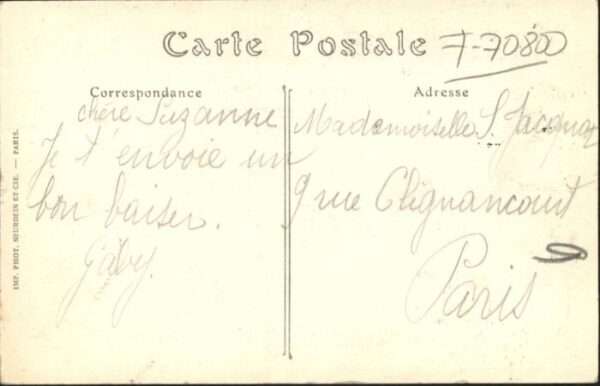 Carte Postale 7-70800
Correspondance
chère Suzanne
Je t'envoie un
bon baiser.
Gaby.
Adresse
Mademoiselle S. Jacquot
9 rue Clignancourt
Paris
IMP. PHOT. NEURDEIN ET CIE. — PARIS.